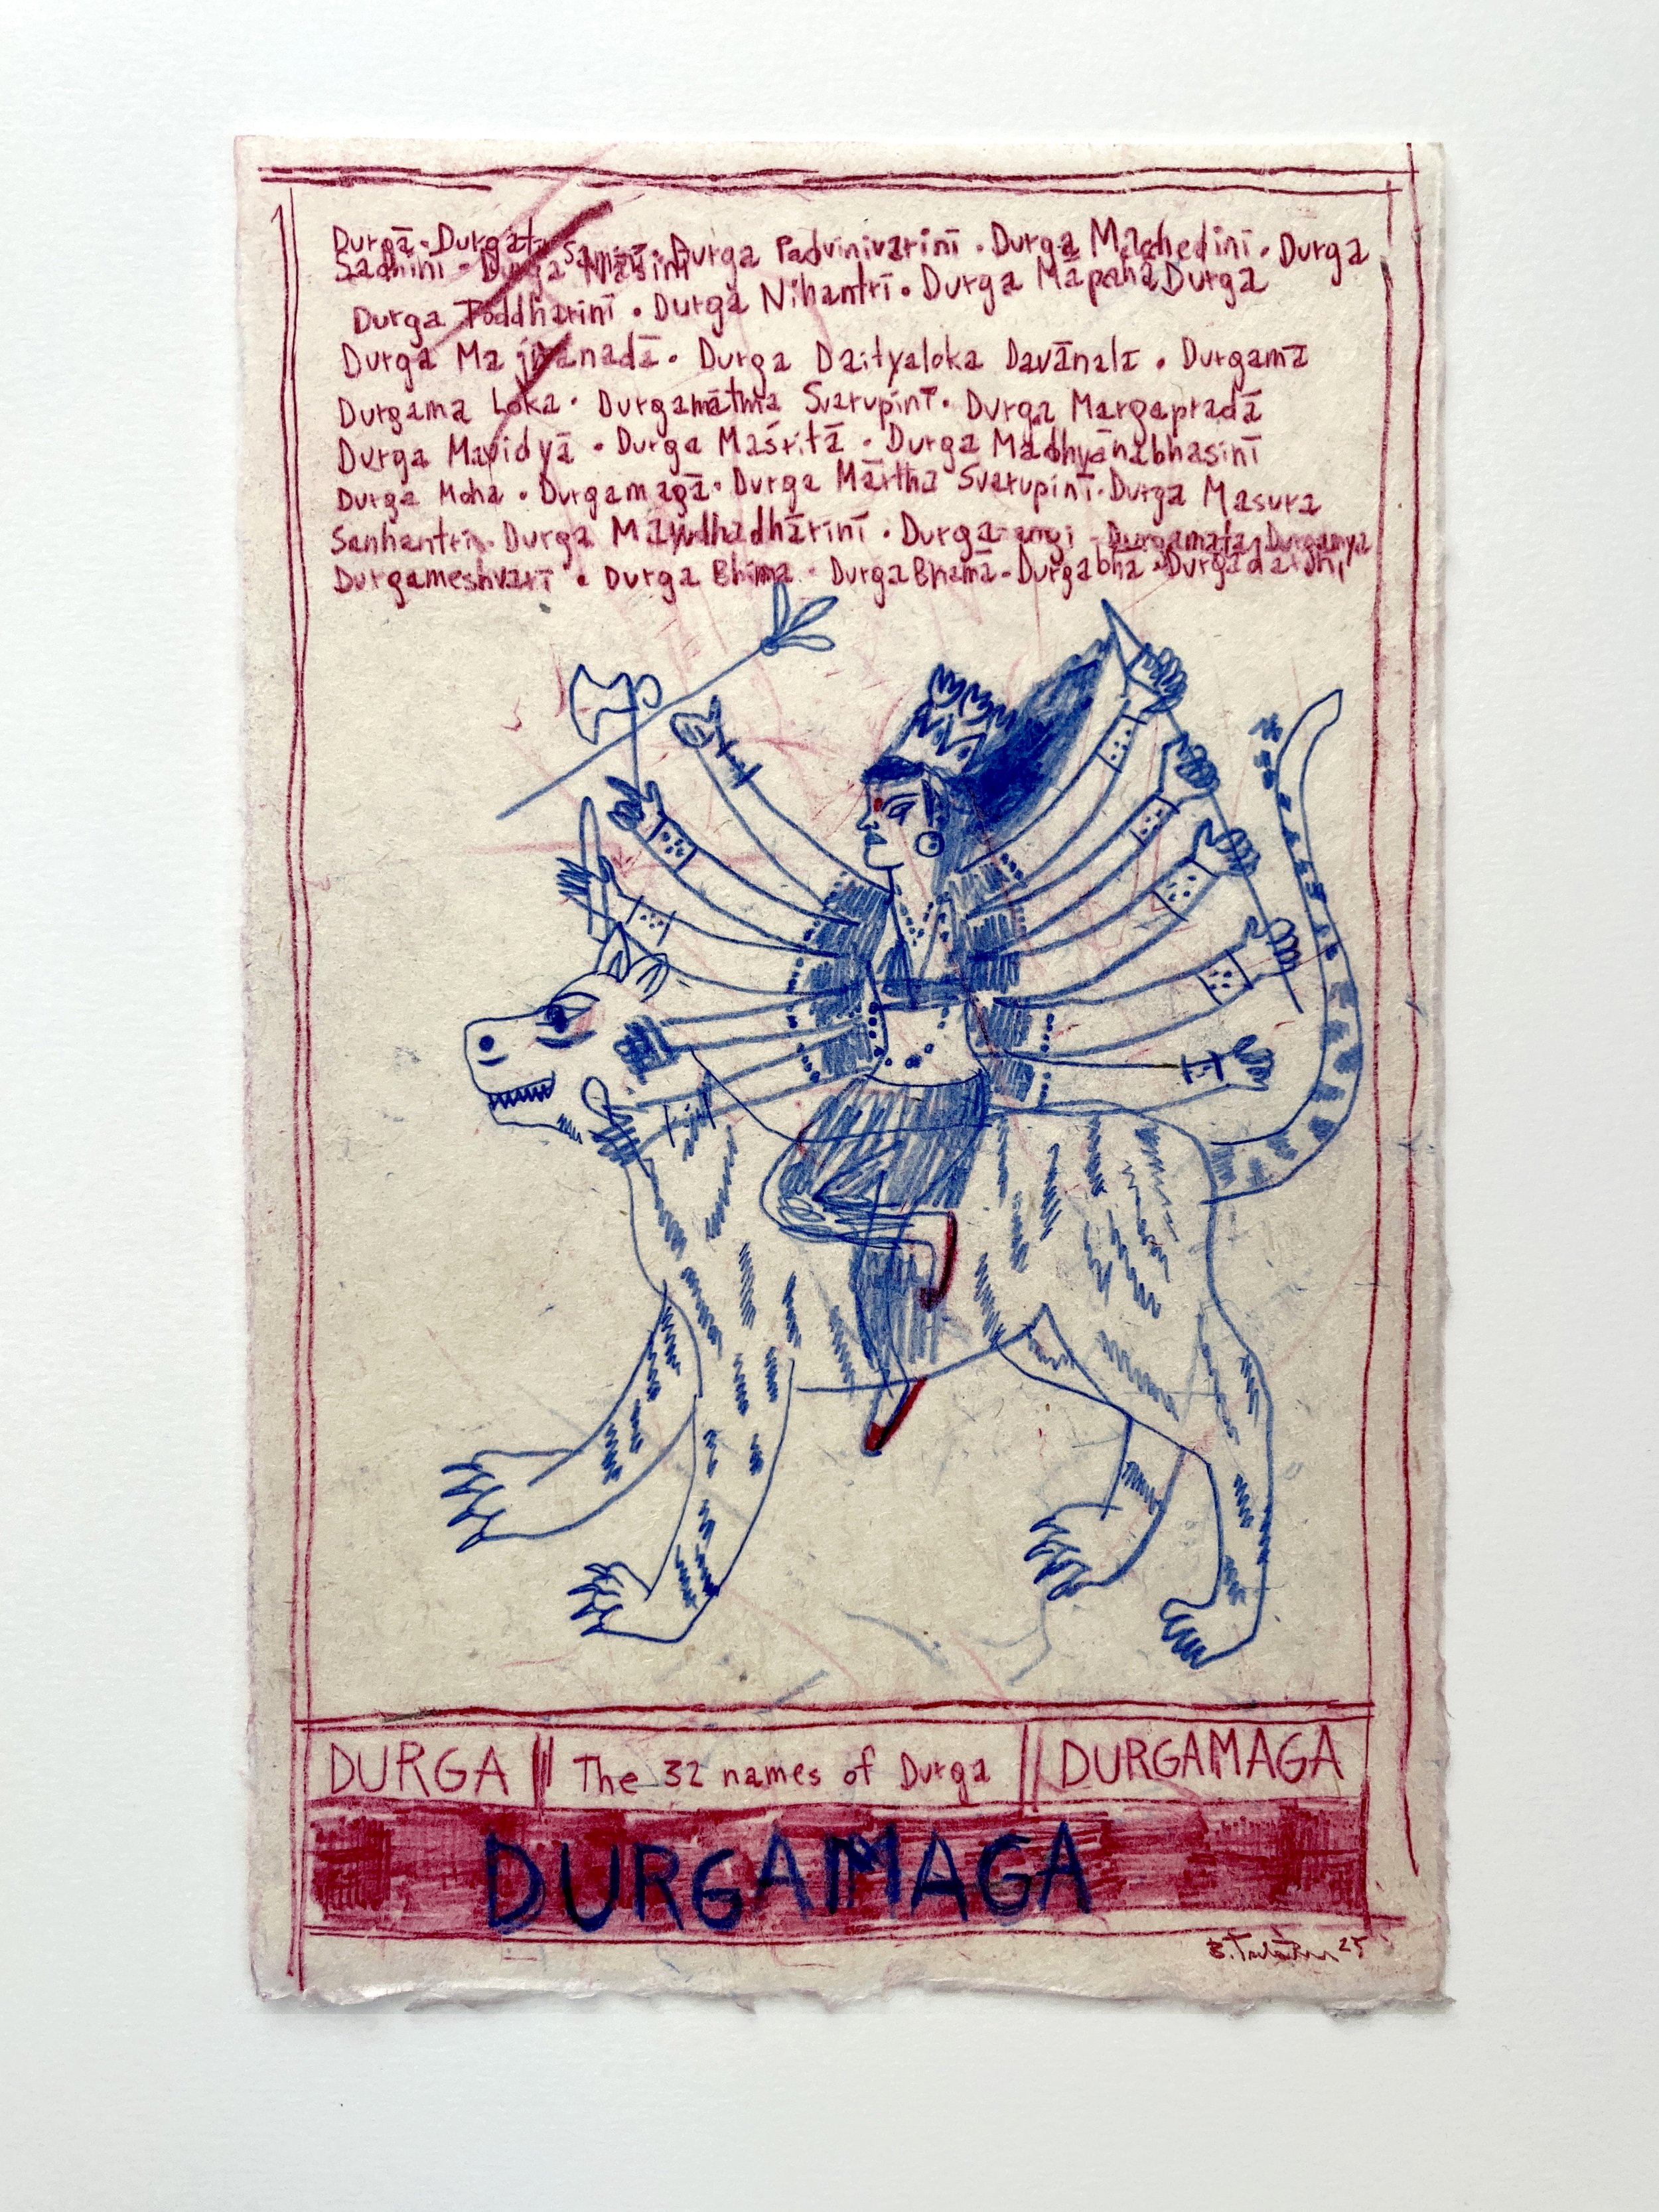 Durgā · Durgati Durga Padvinivarinī · Durga Machedinī · Durga
Sadhinī - Durga Nāśinī
Durga Toddhārinī · Durga Nihantrī · Durga Māpahā Durga
Durga Ma jñanadā · Durga Daityaloka Davānalā · Durgamā
Durgama Loka · Durgamātma Svarupinī · Durga Margapradā
Durga Mavidyā · Durga Maśritā · Durga Madhyānabhasinī
Durga Moha · Durgamagā · Durga Mārtha Svarupinī · Durga Masura
Sanhantri · Durga Mayudhadhārinī · Durga-angi - Durgamata · Durgamya
Durgameshvarī · Durga Bhima · Durga Bhamā - Durgabha · Durgadarshi
DURGA || The 32 names of Durga || DURGAMAGA
DURGAMAGA
25